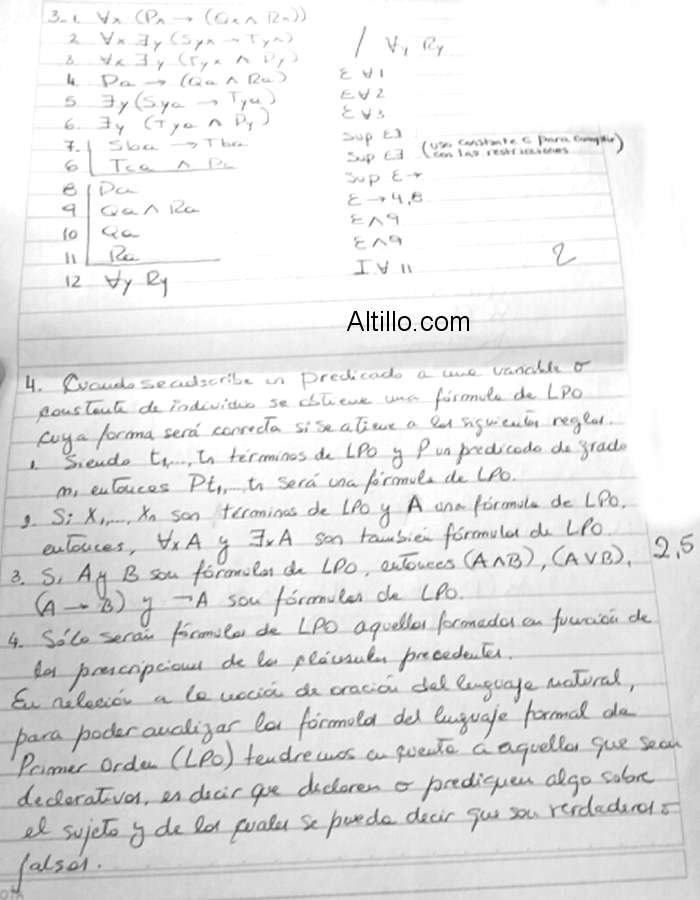 3-1. ∀x (Px → (Qx ∧ Rx))
2 ∀x ∃y (Syx → Tyx) / ∀y Ry
3 ∀x ∃y (Tyx ∧ Py)
4. Pa → (Qa ∧ Ra) E ∀ 1
5 ∃y (Sya → Tya) E ∀ 2
6. ∃y (Tya ∧ Py) E ∀ 3
7. Sba → Tba Sup E∃
6 Tca ∧ Pc Sup E∃ (uso constante c para cumplir con las restricciones)
8 Pa Sup E →
9 Qa ∧ Ra E → 4,8
10 Qa E ∧ 9
11 Ra E ∧ 9
12 ∀y Ry I ∀ 11
2
Altillo.com
4. Cuando se adscribe un predicado a una variable o
constante de individuo se obtiene una fórmula de LPO
cuya forma será correcta si se atiene a las siguientes reglas.
1. Siendo t1,...,tn términos de LPO y P un predicado de grado
n, entonces Pt1,...,tn será una fórmula de LPO.
2. Si X1,..., Xn son términos de LPO y A una fórmula de LPO,
entonces, ∀xA y ∃xA son también fórmulas de LPO
3. Si A y B son fórmulas de LPO, entonces (A∧B), (A∨B), 2,5
(A → B) y ¬A son fórmulas de LPO.
4. Sólo serán fórmulas de LPO aquellas formadas en función de
las prescripciones de las cláusulas precedentes.
En relación a la noción de oración del lenguaje natural,
para poder analizar las fórmulas del lenguaje formal de
Primer Orden (LPO) tendremos en cuenta a aquellas que sean
declarativas, es decir que declaren o prediquen algo sobre
el sujeto y de las cuales se pueda decir que son verdaderas o
falsas.